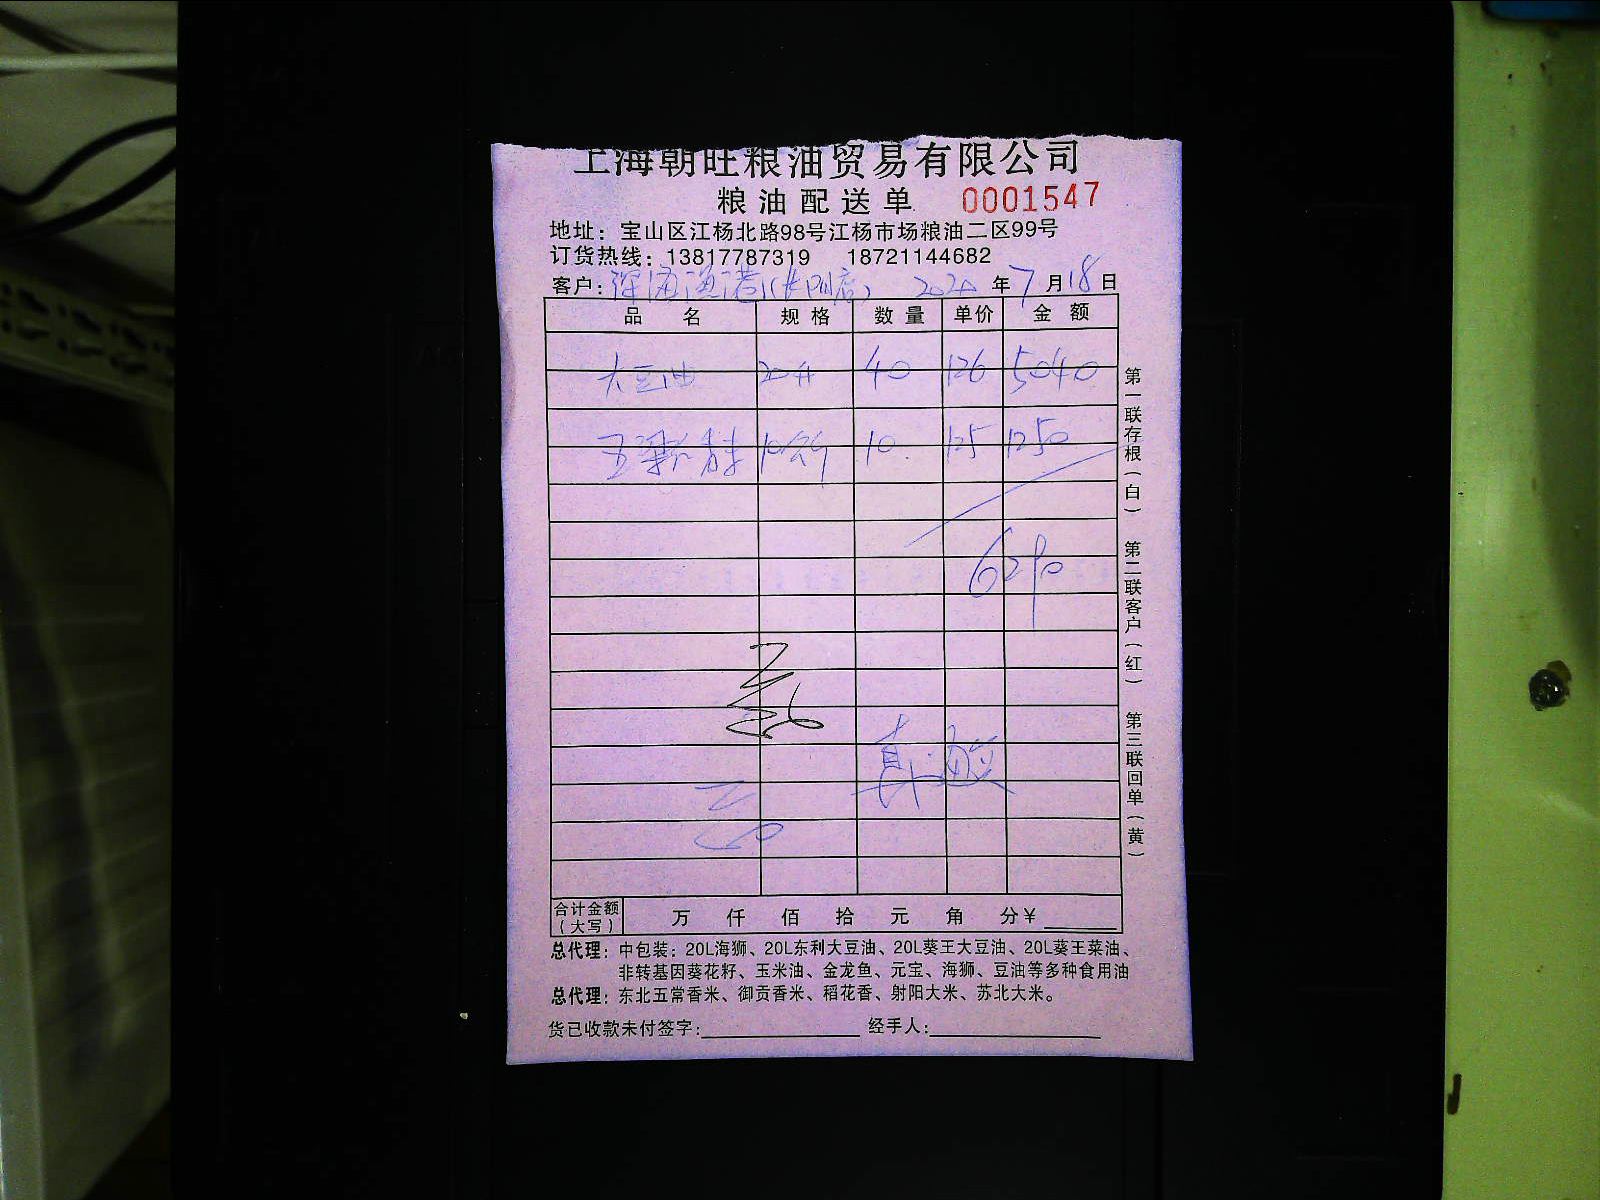 上海朝旺粮油贸易有限公司
粮油配送单 0001547
地址：宝山区江杨北路98号江杨市场粮油二区99号
订货热线：13817787319 18721144682
客户：深海渔港 2020年7月18日
品名 规格 数量 单价 金额
大豆油 20升 40 126 5040
10 125 1250
6290
合计金额（大写） 万 仟 佰 拾 元 角 分¥
总代理：中包装：20L海狮、20L东利大豆油、20L葵王大豆油、20L葵王菜油、
非转基因葵花籽、玉米油、金龙鱼、元宝、海狮、豆油等多种食用油
总代理：东北五常香米、御贡香米、稻花香、射阳大米、苏北大米。
货已收款未付签字： 经手人：
第一联存根（白） 第二联客户（红） 第三联回单（黄）